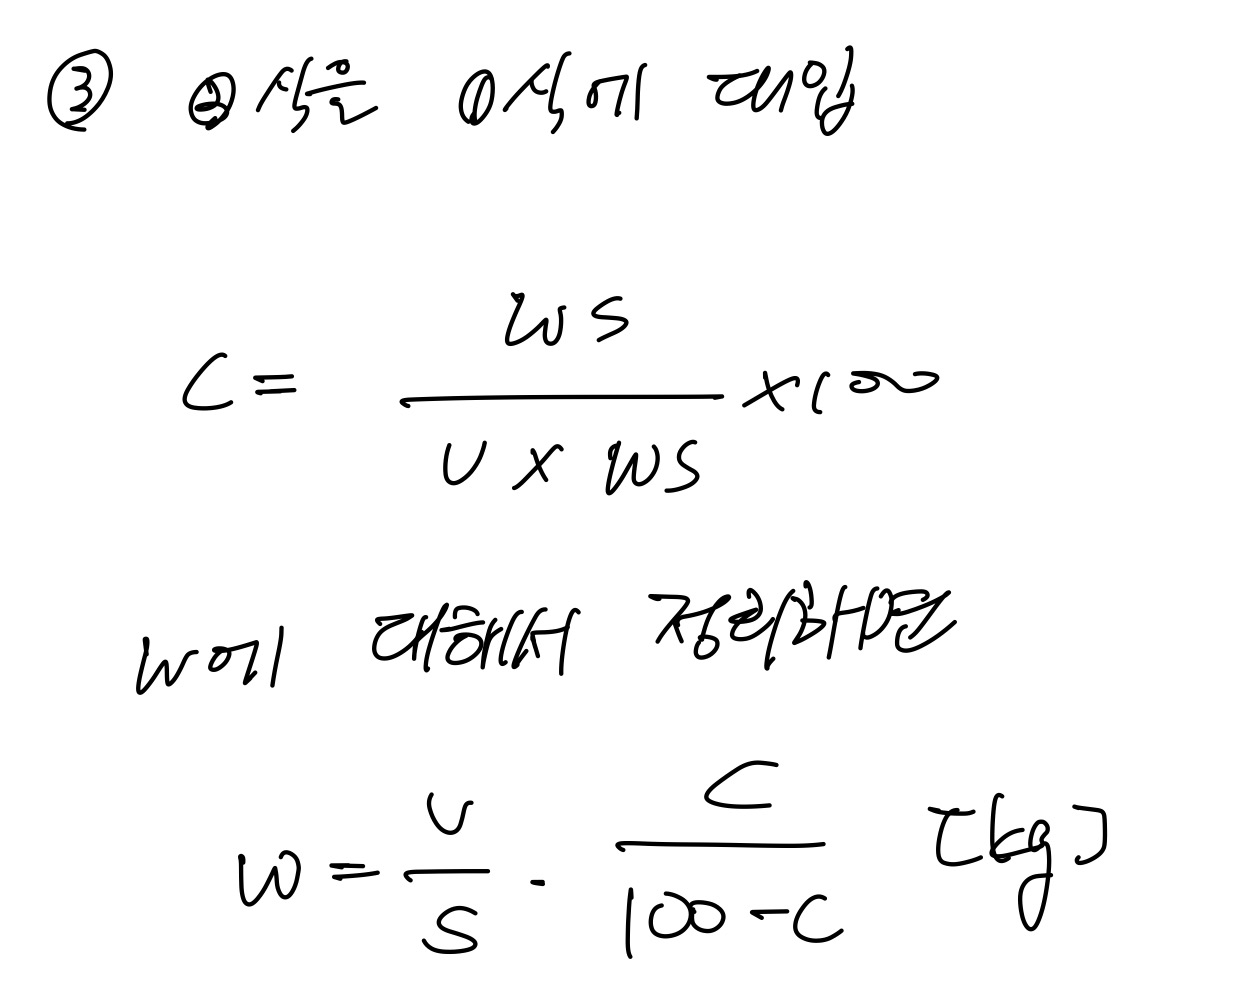 ③ ②식을 ①식에 대입
C = WS / V × WS ×100
W에 대해서 정리하면
W = V/S · C/100-C [kg]